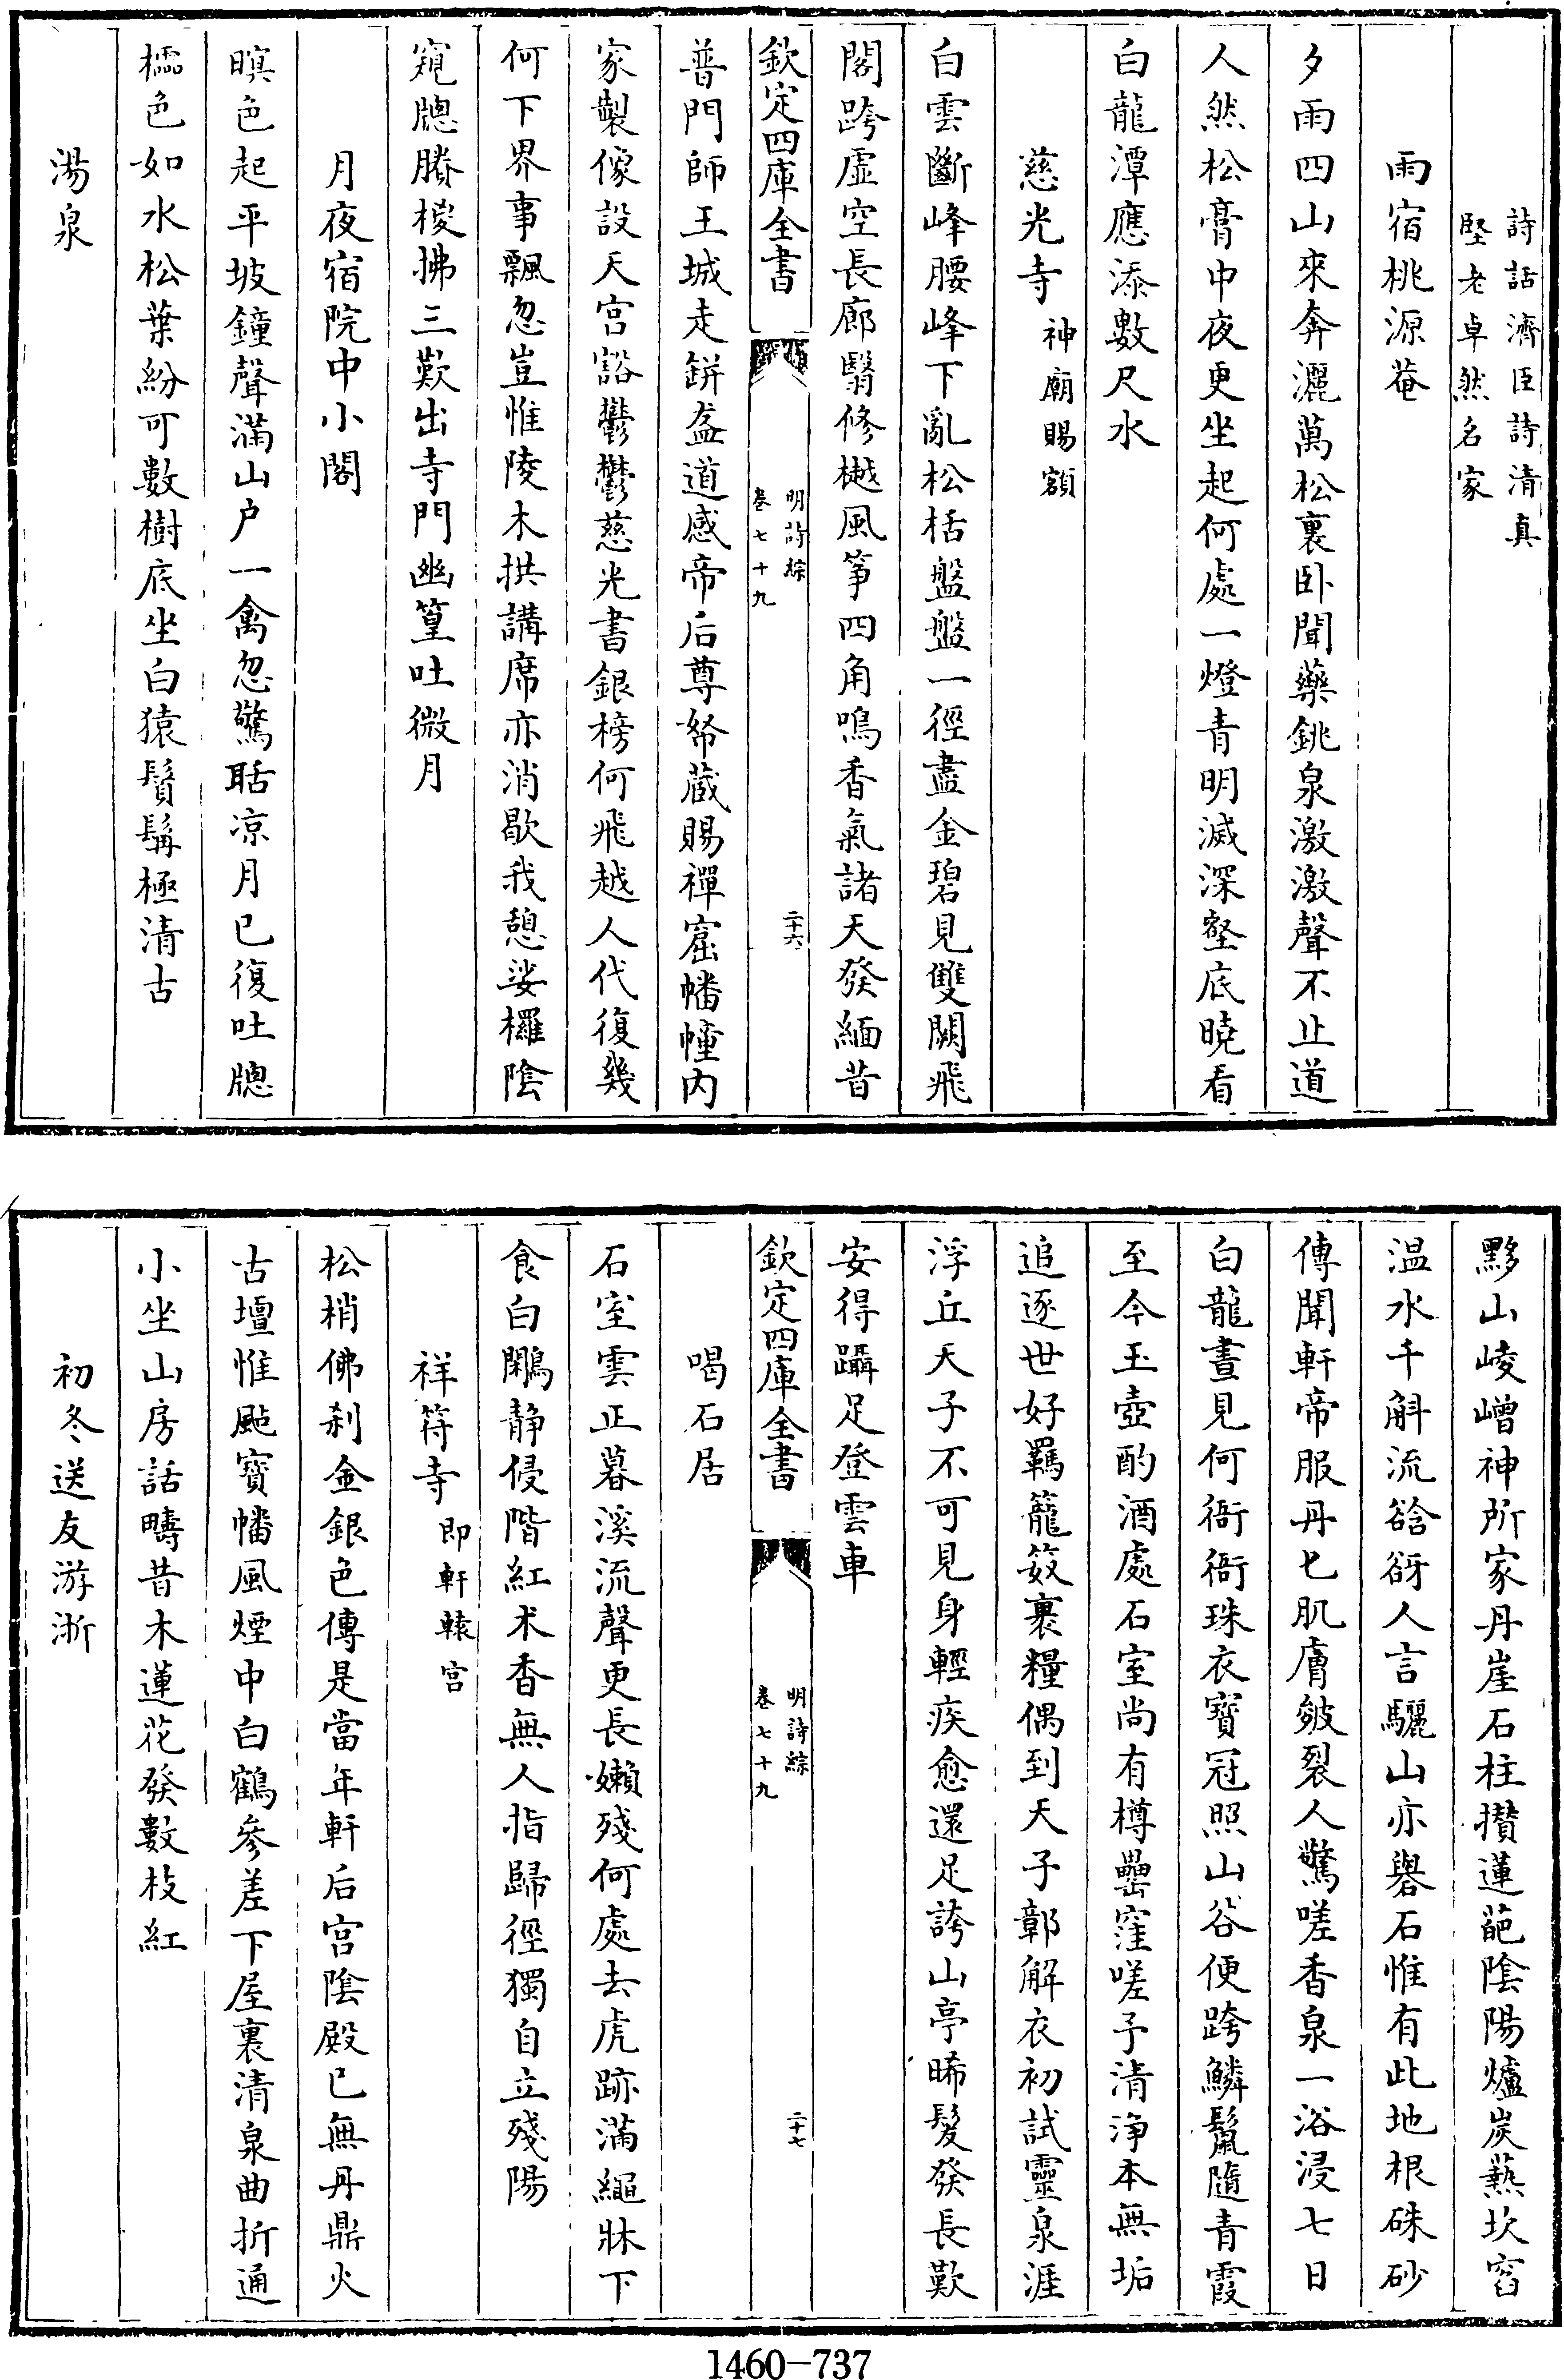 詩話濟臣詩清真
堅老卓然名家
雨宿桃源菴
夕雨四山來奔灑萬松裏卧聞藥銚泉激激聲不止道
人然松膏中夜更坐起何處一燈青明滅深壑底曉看
白龍潭應添數尺水
慈光寺神廟賜額
白雲斷峰腰峰下亂松栝盤盤一徑盡金碧見雙闕飛
閣跨虛空長廊翳修樾風筝四角鳴香氣諸天發緬昔
欽定四庫全書
明詩綜
卷七十九
二十六
普門師王城走缾盋道感帝后尊帑藏賜禪窟幡幢内
家製像設天宫豁鬱鬱慈光書銀榜何飛越人代復幾
何下界事飄忽豈惟陵木拱講席亦消歇我憩娑欏陰
窺牕勝椶拂三歎出寺門幽篁吐微月
月夜宿院中小閣
暝色起平坡鐘聲滿山户一禽忽驚聒凉月已復吐牕
櫺色如水松葉紛可數樹底坐白猿鬢髯極清古
湯泉
黟山崚嶒神所家丹崖石柱攢蓮葩陰陽爐炭爇坎窞
温水千斛流谽谺人言驪山亦礜石惟有此地根硃砂
傳聞軒帝服丹七肌膚皴裂人驚嗟香泉一浴浸七日
白龍晝見何衙衙珠衣寶冠照山谷便跨鱗鬣隨青霞
至今玉壺酌酒處石室尚有樽罍窪嗟予清浄本無垢
追逐世好羈籠笯裹糧偶到天子鄣解衣初試靈泉涯
浮丘天子不可見身輕疾愈還足誇山亭晞髮發長歎
安得躡足登雲車
欽定四庫全書
明詩綜
卷七十九
二十七
喝石居
石室雲正暮溪流聲更長嬾殘何處去虎跡滿繩牀下
食白鷴静侵階紅术香無人指歸徑獨自立殘陽
祥符寺即軒轅宫
松梢佛刹金銀色傳是當年軒后宫陰殿已無丹鼎火
古壇惟颭寳幡風煙中白鶴參差下屋裏清泉曲折通
小坐山房話疇昔木蓮花發數枝紅
初冬送友游浙
1460-737